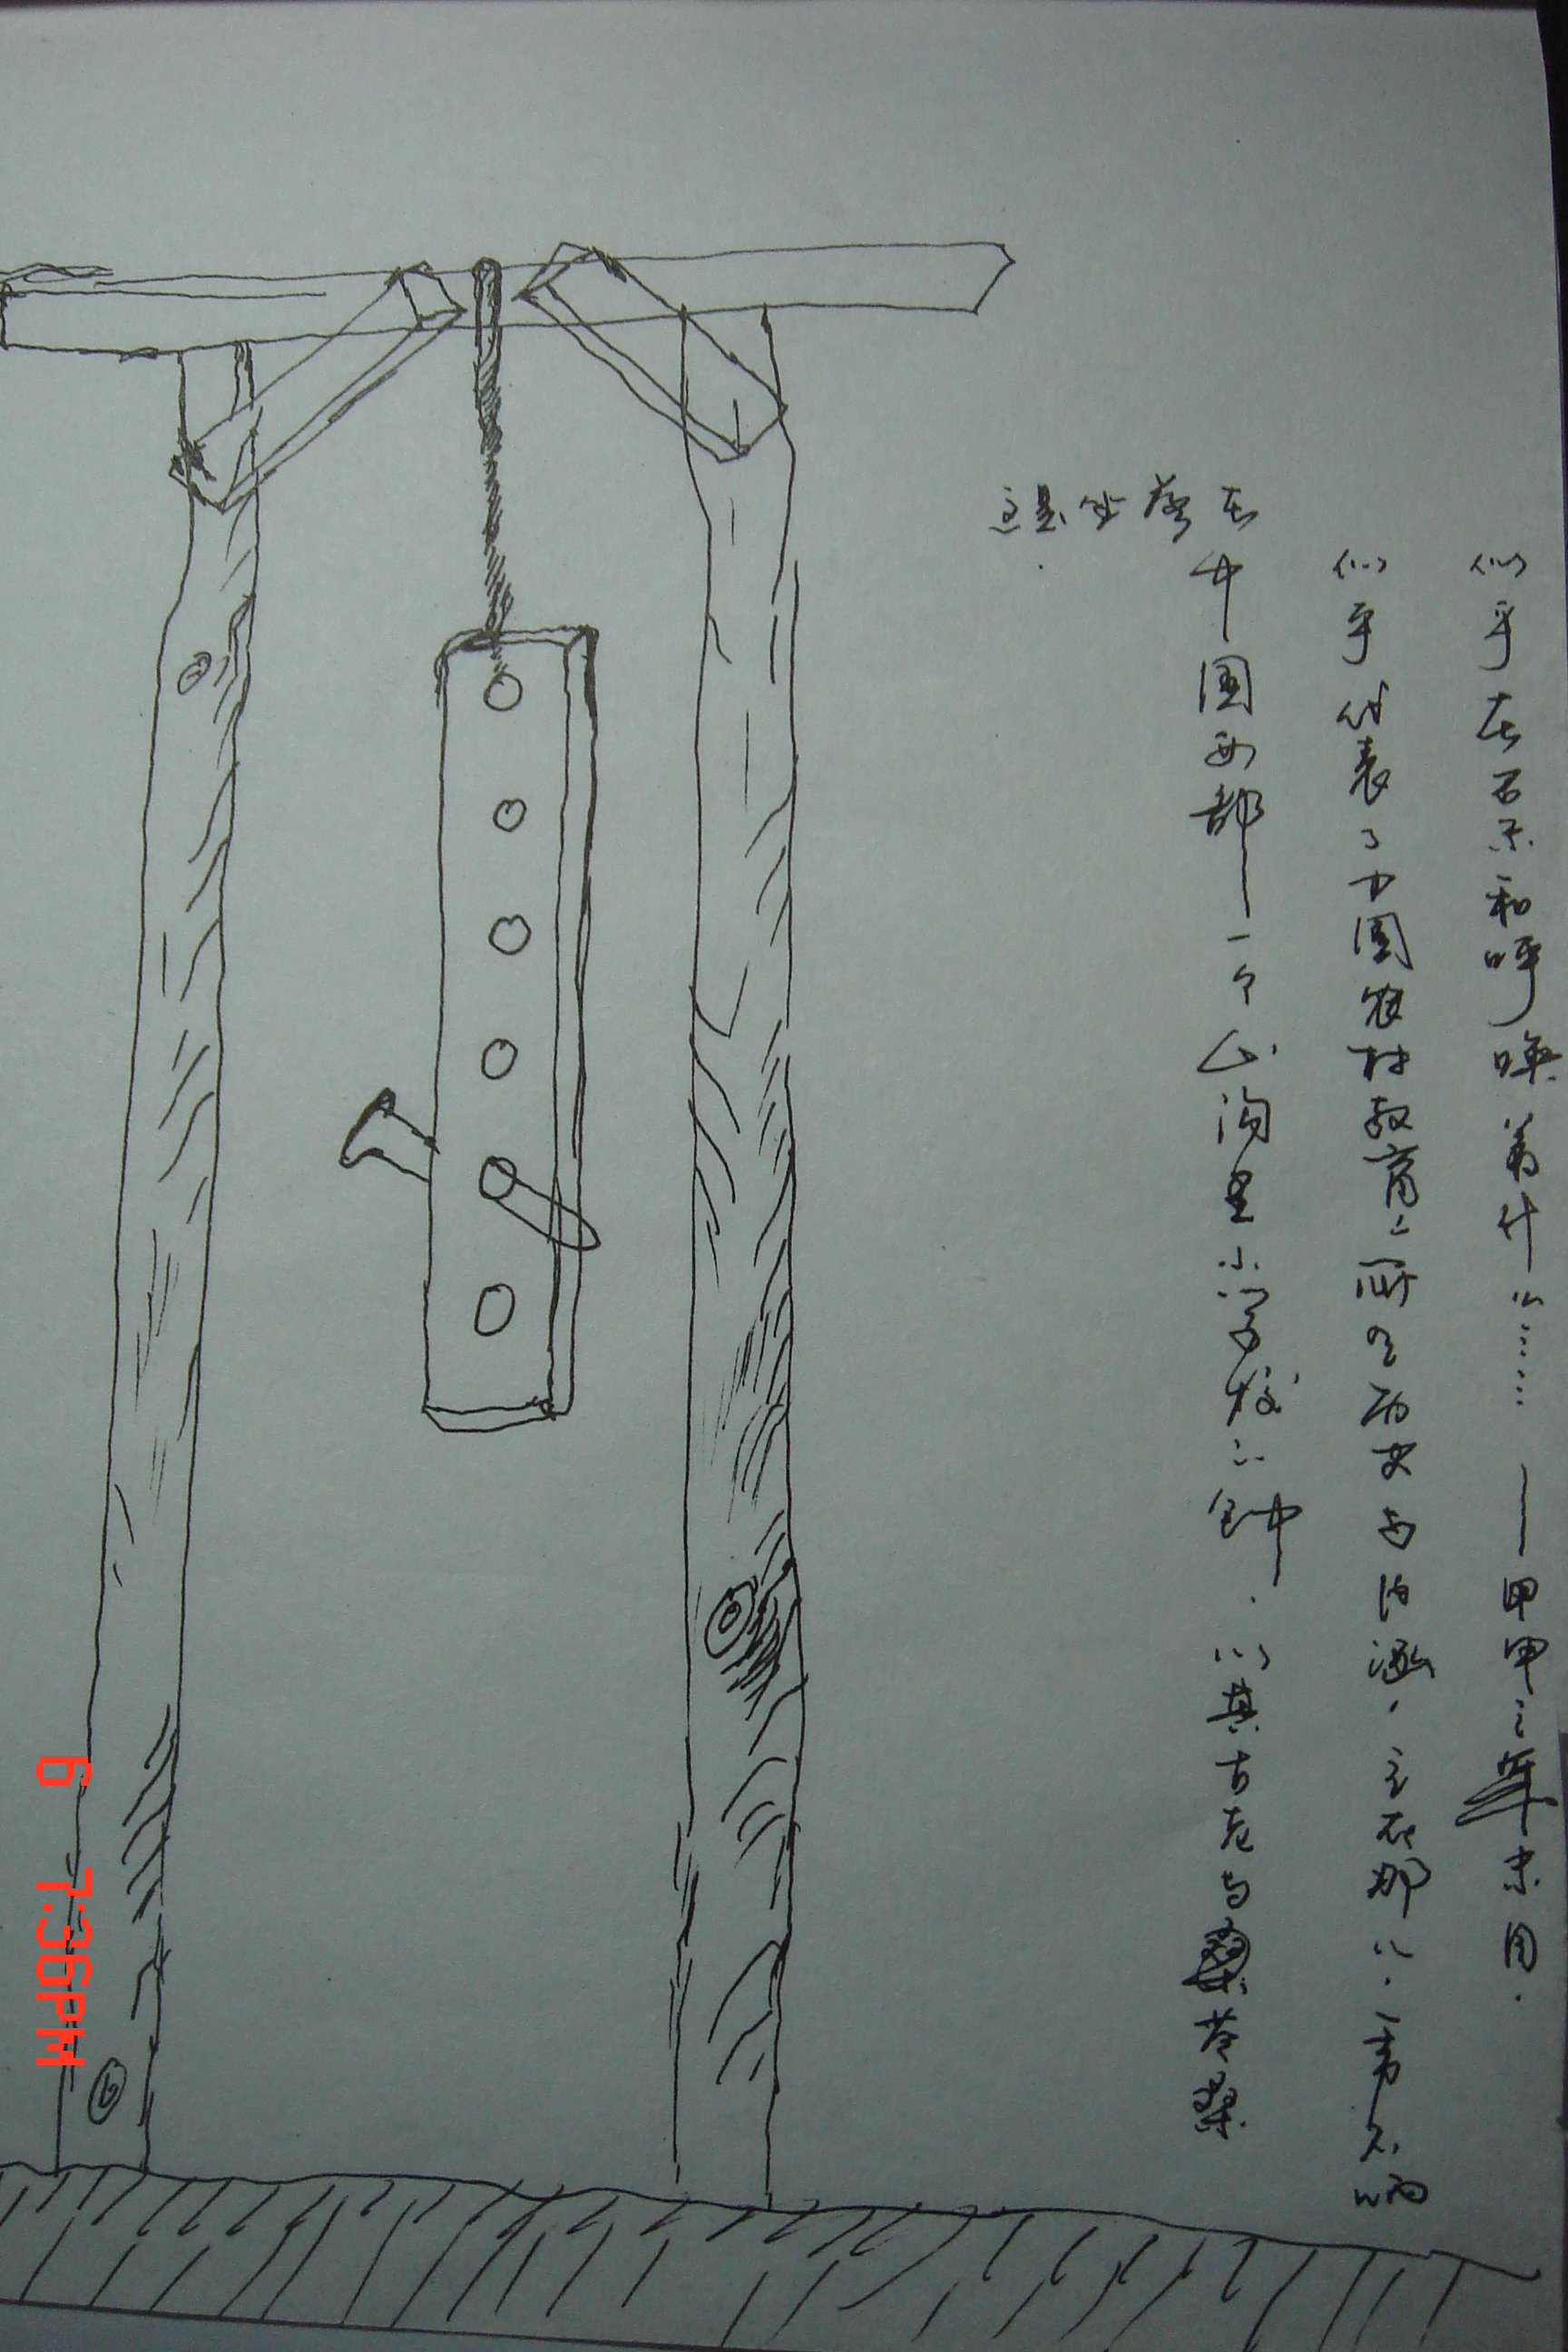 这是坐落在
中国西部一个山沟里小学校之钟.以其古老与苍桑
似乎代表了中国农村教育之所有历史与内涵,立在那儿.一声不响
似乎在召示和呼唤着什么……——甲申之年末
6 7:36PM